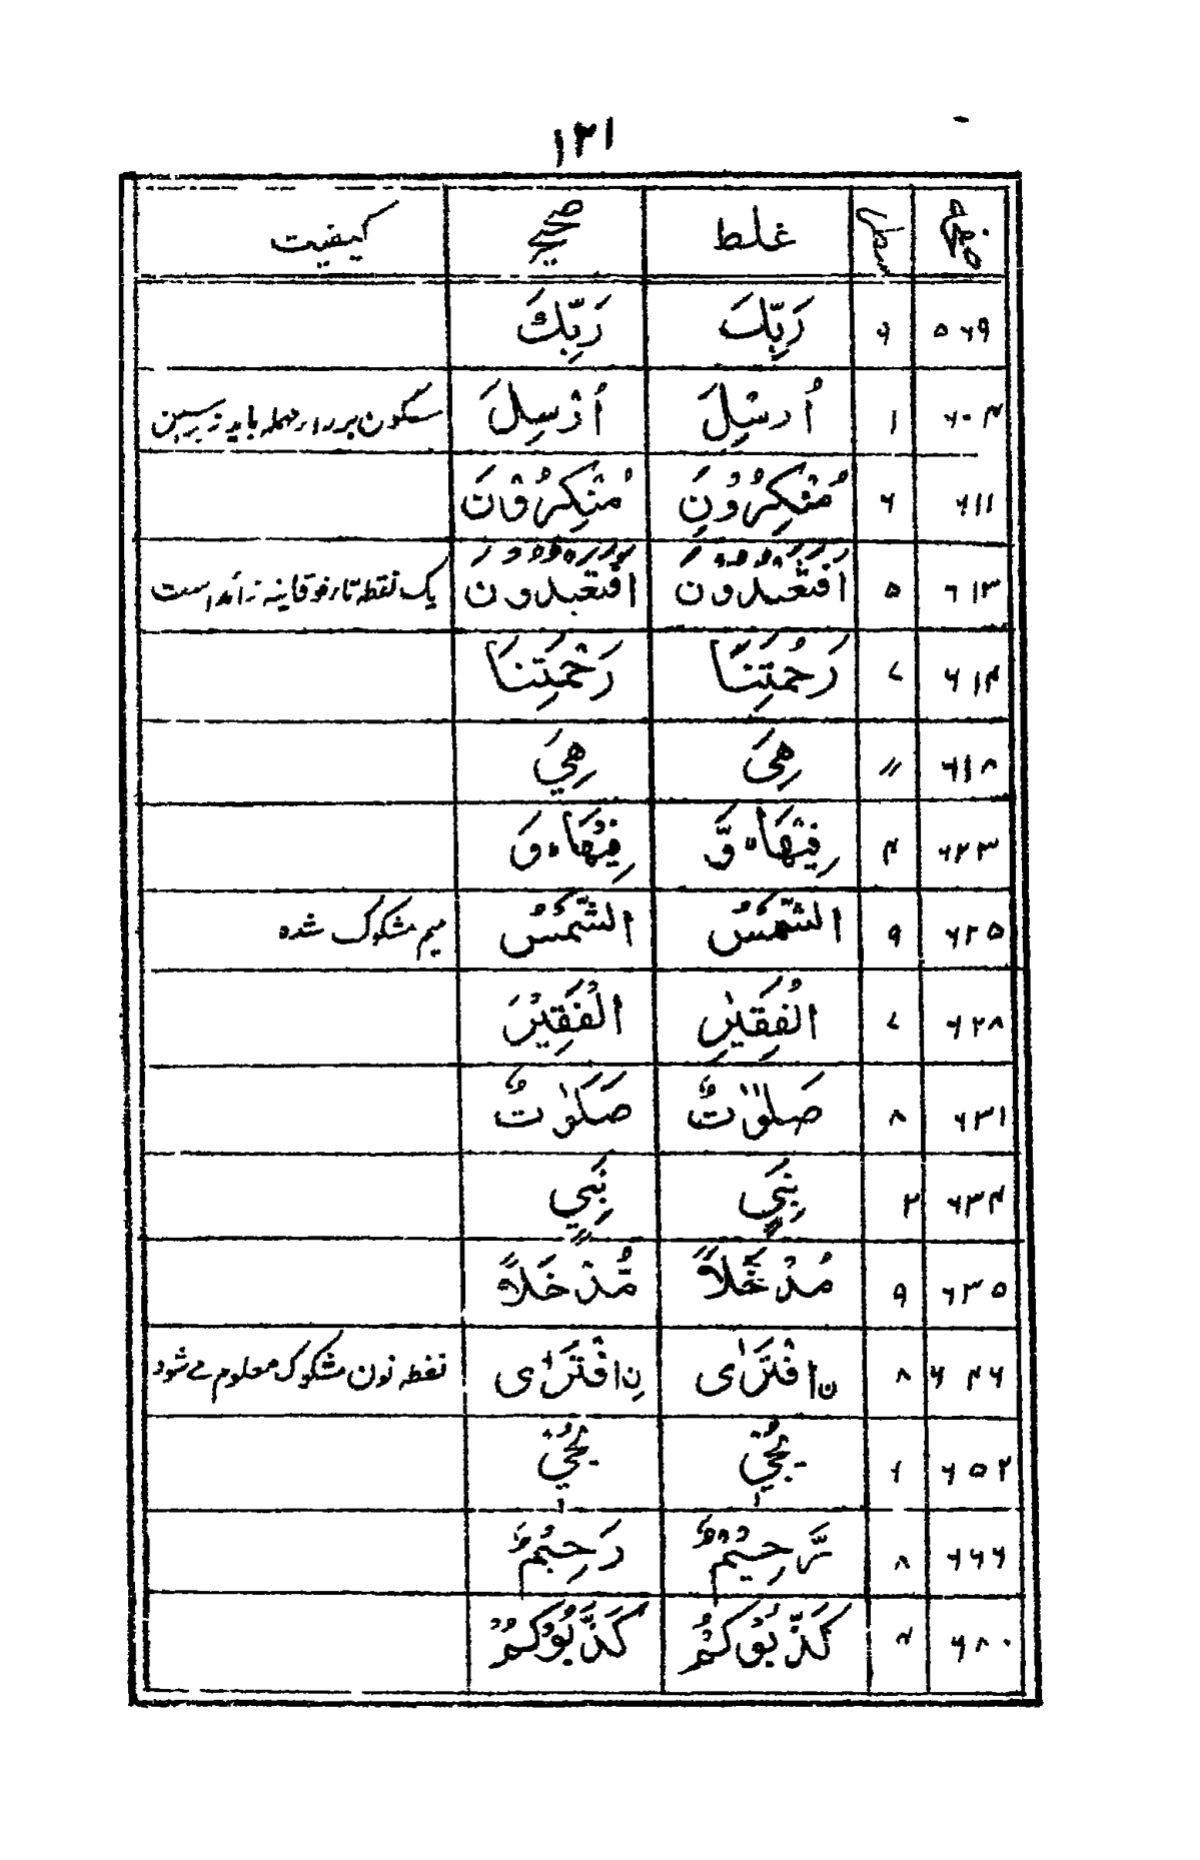 ١٢١
صفحہ سطر غلط صحیح کیفیت
۵۶۹ ۶ رَبِّكَ رَبِّكَ
۶۰۴ ۱ اُرسْلَ اُرْسِلَ سکون بر راء مهمله باید نه بر سین
۶۱۱ ۶ مُنْكِرُوُنَ مُنْكِرُوْنَ
۶۱۳ ۵ اَفَتَعْبُدُوْنَ اَفَتَعْبُدُوْنَ یک نقطه تاء فوقانیه زائد است
۶۱۴ ۷ رَحُمَتِنَا رَحْمَتِنَا
۶۱۸ 〃 هِیَ هِيَ
۶۲۳ ۴ فِيْهَا وَّ فِيْهَا وَ
۶۲۵ ۹ الشَّمْسُ الشَّمْسُ میم مشکوک شده
۶۲۸ ۷ الْفَقِيْرِ الْفَقِيْرَ
۶۳۱ ۸ صَلَوٰتٌ صَلَوٰتٌ
۶۳۴ ۲ نَبِيٍّ نَبِيٍّ
۶۳۵ ۹ مُدْخَّلًا مُّدْخَلًا
۶۴۶ ۸ نِ افْتَرٰى نِ افْتَرٰى نقطه نون مشکوک معلوم مے شود
۶۵۲ ۶
۶۶۶ ۸ رَّحِيْمٌ رَحِيْمٌ
۶۸۰ ۴ كَذَّبُوْكُمْ كَذَّبُوْكُمْ